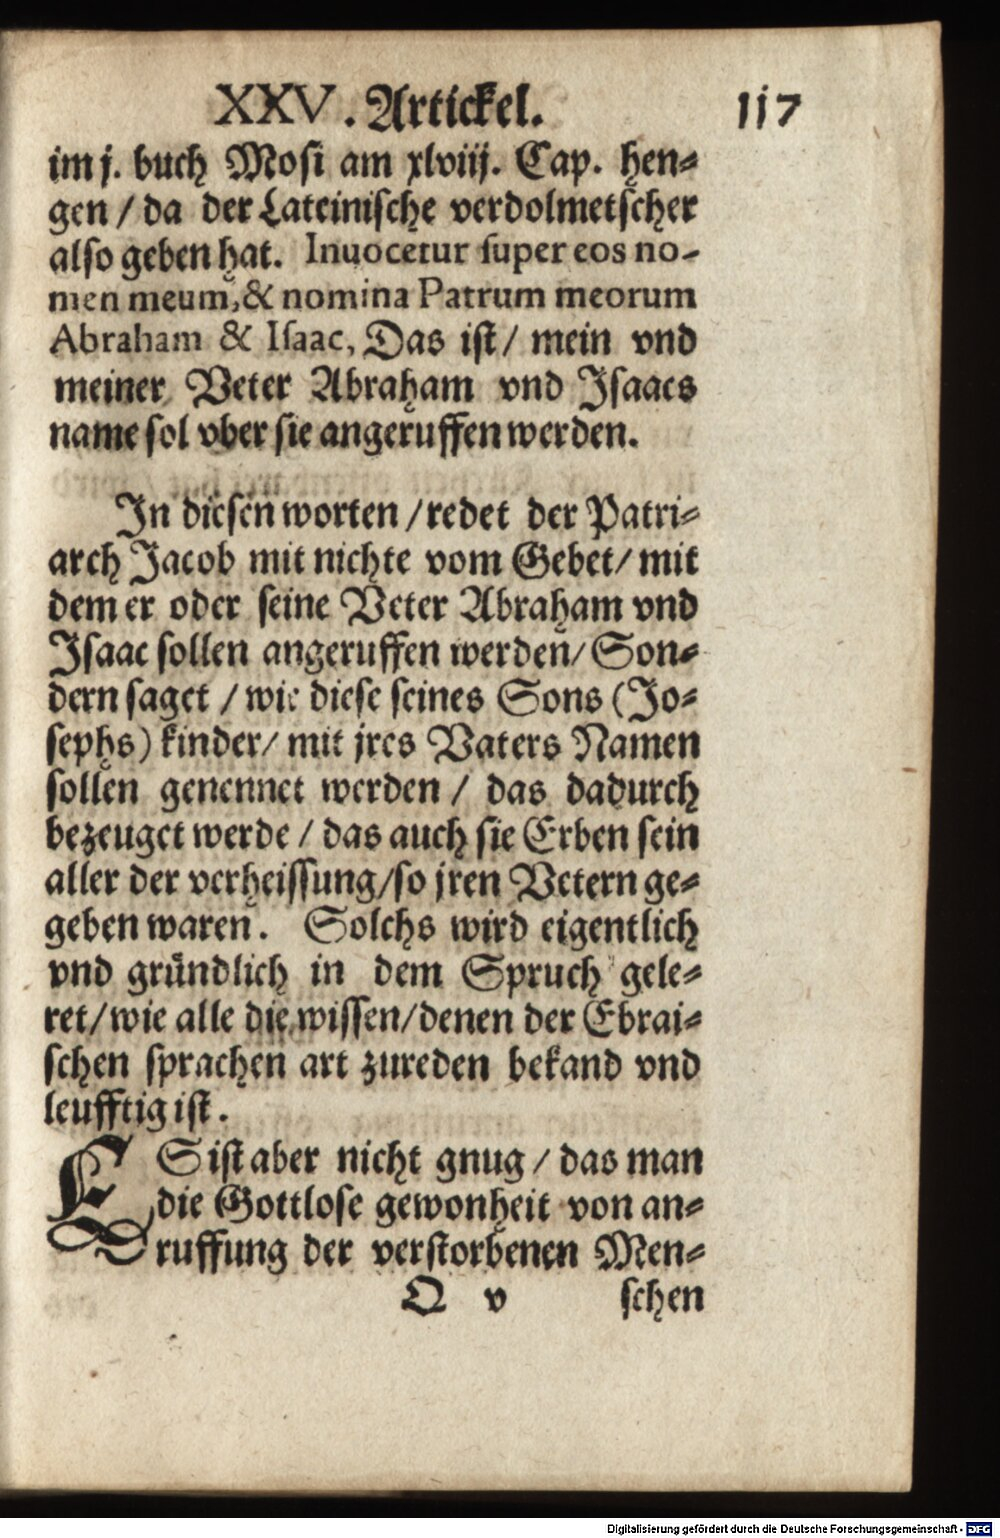 XXV. Artickel. 117
im j. buch Mosi am xlviij. Cap. hen-
gen / da der Lateinische verdolmetscher
also geben hat. Inuocetur super eos no-
men meum, & nomina Patrum meorum
Abraham & Isaac, Das ist / mein vnd
meiner Veter Abraham vnd Isaacs
name sol vber sie angeruffen werden.
In diesen worten / redet der Patri-
arch Jacob mit nichte vom Gebet / mit
dem er oder seine Veter Abraham vnd
Isaac sollen angeruffen werden / Son-
dern saget / wie diese seines Sons (Jo-
sephs) kinder / mit jres Vaters Namen
sollen genennet werden / das dadurch
bezeuget werde / das auch sie Erben sein
aller der verheissung / so jren Vetern ge-
geben waren. Solchs wird eigentlich
vnd gründlich in dem Spruch gele-
ret / wie alle die wissen / denen der Ebrai-
schen sprachen art zureden bekand vnd
leufftig ist.
ES ist aber nicht gnug / das man
die Gottlose gewonheit von an-
ruffung der verstorbenen Men-
Q v schen
Digitalisierung gefördert durch die Deutsche Forschungsgemeinschaft - DFG